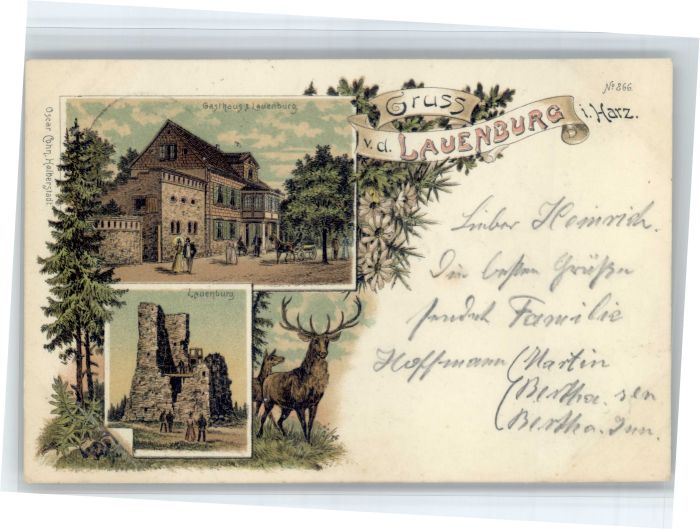 Gasthaus z. Lauenburg.
Oscar Cohn, Halberstadt
Lauenburg.
No 866.
Gruss
v. d. LAUENBURG i. Harz.
Lieber Heinrich.
Die besten Grüße
sendet Familie
Hoffmann (Martin
(Bertha. sen
(Bertha. Jun.